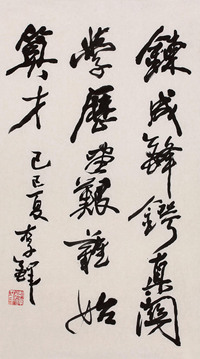 鍊成鋒鍔真
學歷盡艱難始
算才
己巳夏李鐸